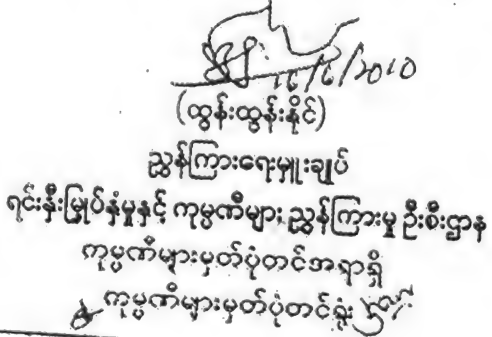 16/6/2010
(ထွန်းထွန်းနိုင်)
ညွှန်ကြားရေးမှူးချုပ်
ရင်းနှီးမြှုပ်နှံမှုနှင့် ကုမ္ပဏီများ ညွှန်ကြားမှု ဦးစီးဌာန
ကုမ္ပဏီများမှတ်ပုံတင်အရာရှိ
ကုမ္ပဏီများမှတ်ပုံတင်ရုံး